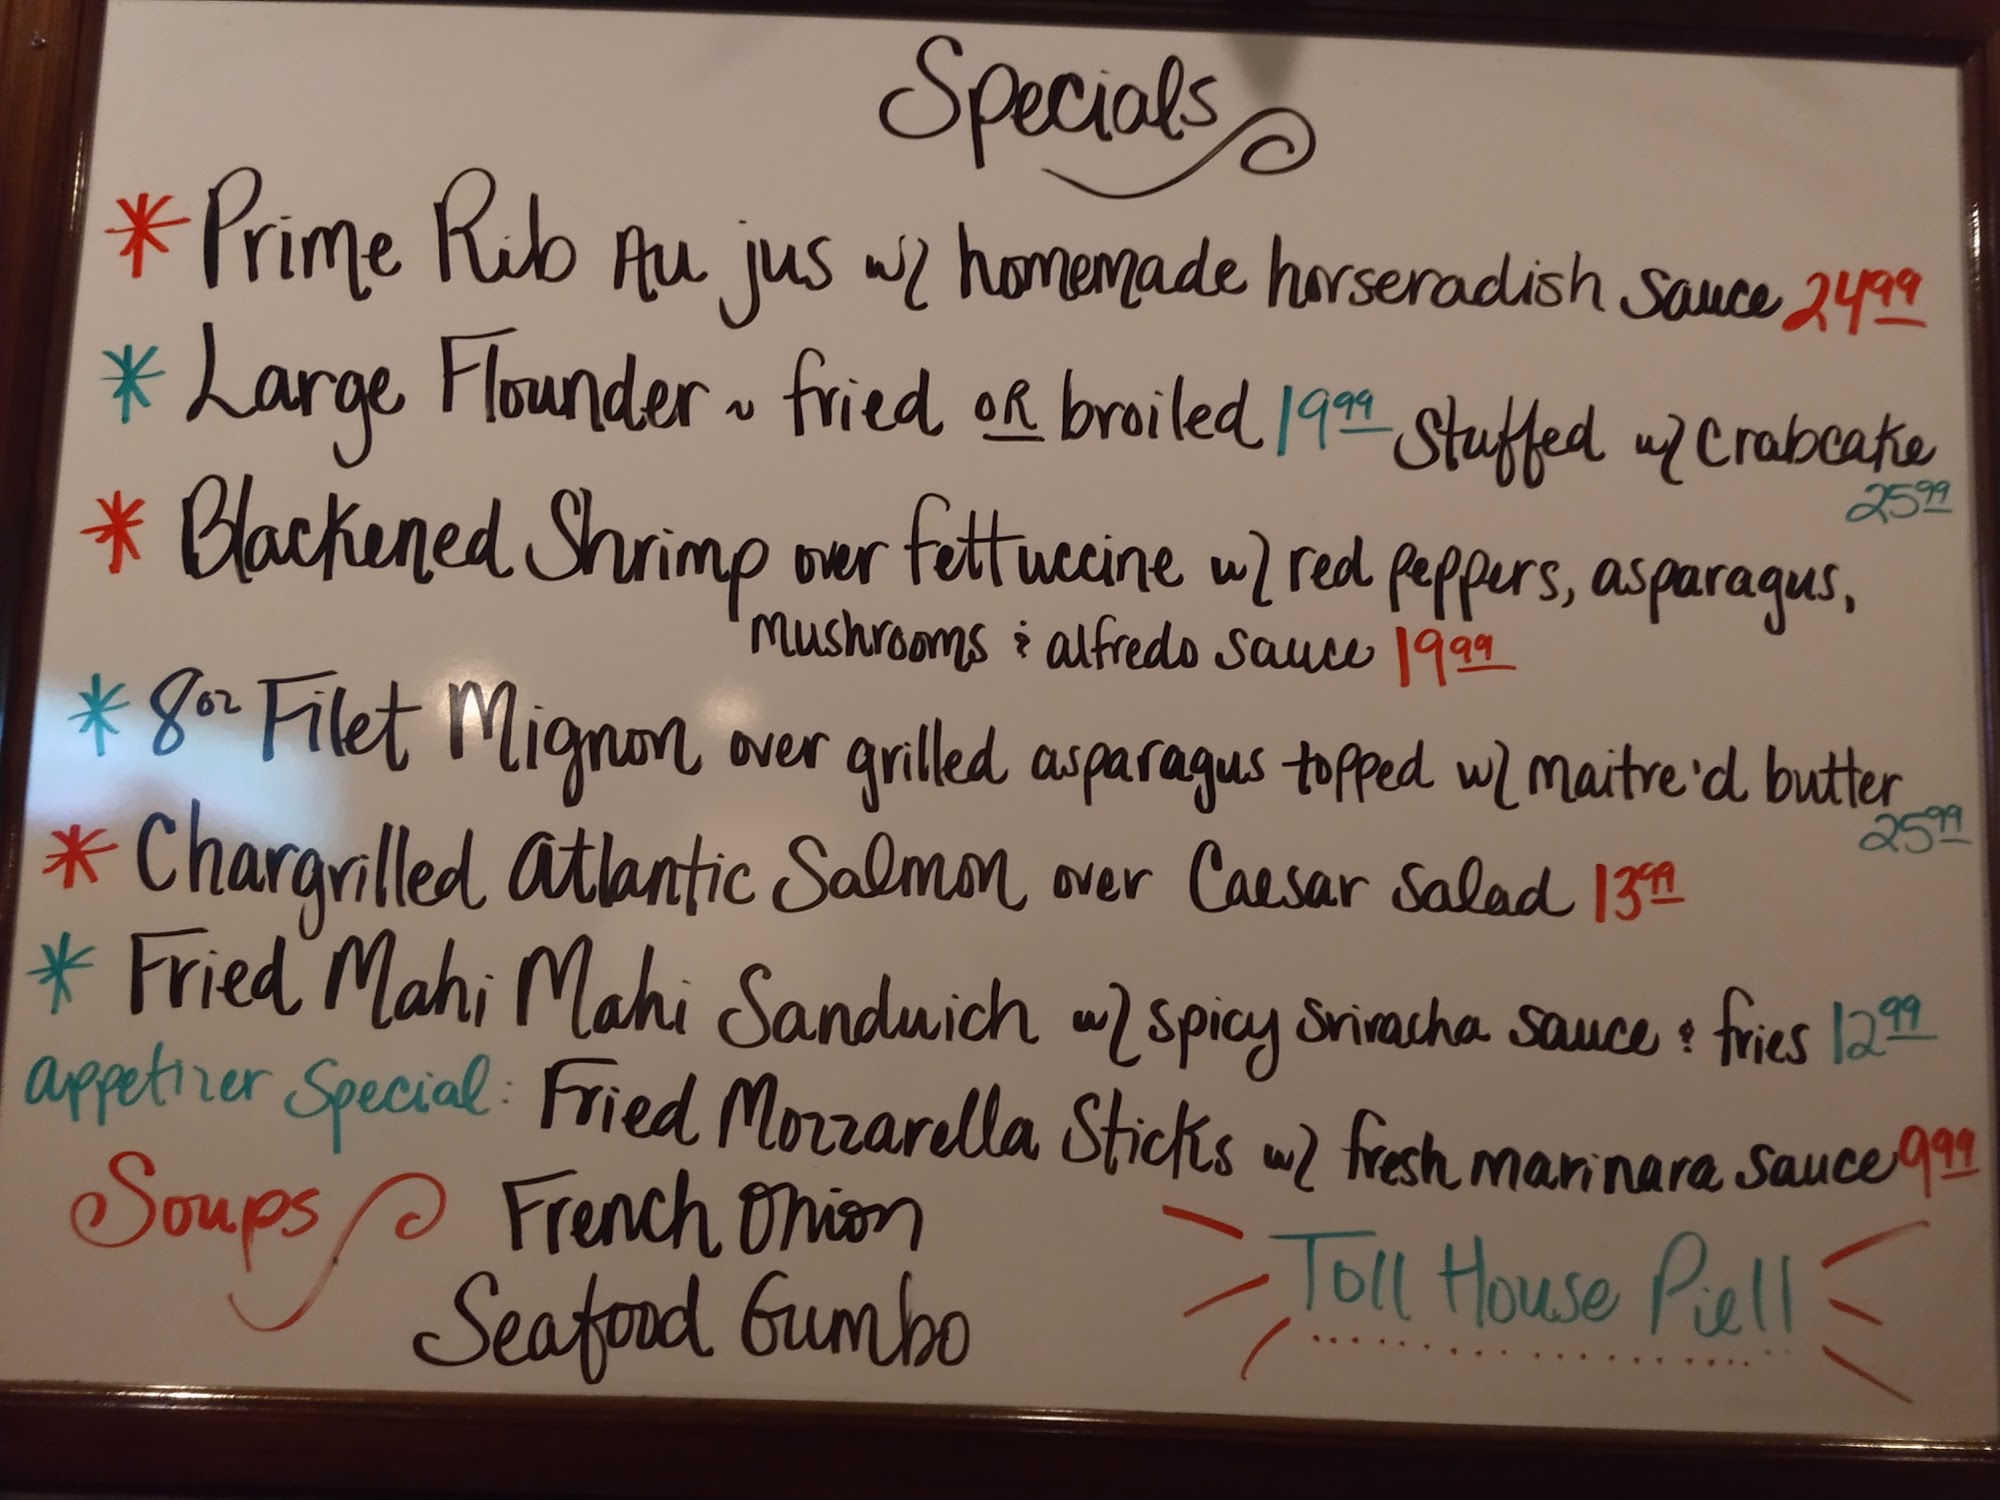 Specials
* Prime Rib Au jus w/ homemade horseradish sauce 24.99
* Large Flounder ~ fried OR broiled 19.99 Stuffed w/ Crabcake
25.99
* Blackened Shrimp over fettuccine w/ red peppers, asparagus,
mushrooms & alfredo sauce 19.99
* 8oz Filet Mignon over grilled asparagus topped w/ maitre'd butter
25.99
* Chargrilled Atlantic Salmon over Caesar salad 13.99
* Fried Mahi Mahi Sandwich w/ spicy sriracha sauce & fries 12.99
appetizer Special: Fried Mozzarella Sticks w/ fresh marinara sauce 9.99
Soups French Onion
Seafood Gumbo
Toll House Pie!!